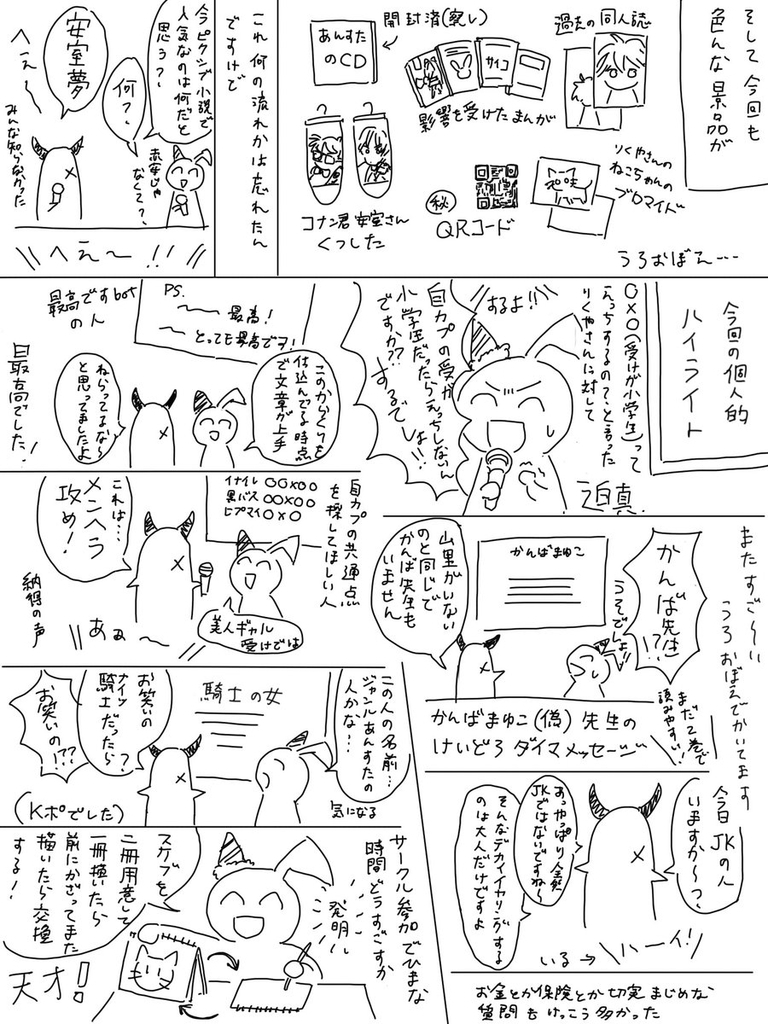 そして今回も
色んな景品が
過去の同人誌
開封済(察し)
あんすた
のCD
サイコ
影響を受けたまんが
りくやさんの
ねこちゃんの
ブロマイド
㊙
QRコード
コナン君安室さん
くつした
うろおぼえ…
これ何の流れかは忘れたん
ですけど
今ピクシブ小説で
人気なのは何だと
思う?
何?
赤安じゃ
なくて?
安室夢
へぇ〜
みんな知らなかった
\\へえ〜!!//
今回の個人的
ハイライト
○×○(受けが小学生)って
えっちするの?と言った
りくやさんに対して
するよ!!
自カプの受が
小学生だったらえっちしないん
ですか??
するでしょ!!
迫真
最高ですbot
の人
PS.
最高!
とっても最高です!
このからくりを
仕込んでる時点
で文章が上手
ねらってるなら
と思ってましたよ
最高でした!
またすご〜い
うろおぼえでかいてます
かんば先生
!?
うそでしょ
かんばまゆこ
山里がいない
のと同じで
かんば先生も
いません
まだ2巻で
読みやすい!
かんばまゆこ(偽)先生の
けいどろダイマメッセージ
自カプの共通点
を探してほしい人
イナイレ ○○×○○
黒バス ○○×○○
ヒプマイ ○×○
これは…
メンヘラ
攻め!
美人ギャル
受けでは
納得の声
\\あぁ〜//
この人の名前…
ジャンルあんすたの
人かな…
気になる
騎士の女
お笑いの
ナイツ
騎士だったら?
お笑いの!??
(Kポでした)
今日JKの人
いますか〜?
\ハーイ!/
いる→
あっやっぱり全然
JKではないですね
そんなデカイイヤリングする
のは大人だけですよ
お金とか保険とか切実まじめな
質問もけっこう多かった
サークル参加でひまな
時間どうすごすか
発明
スケブを
二冊用意して
一冊描いたら
前にかざってまた
描いたら交換
する!
天才!